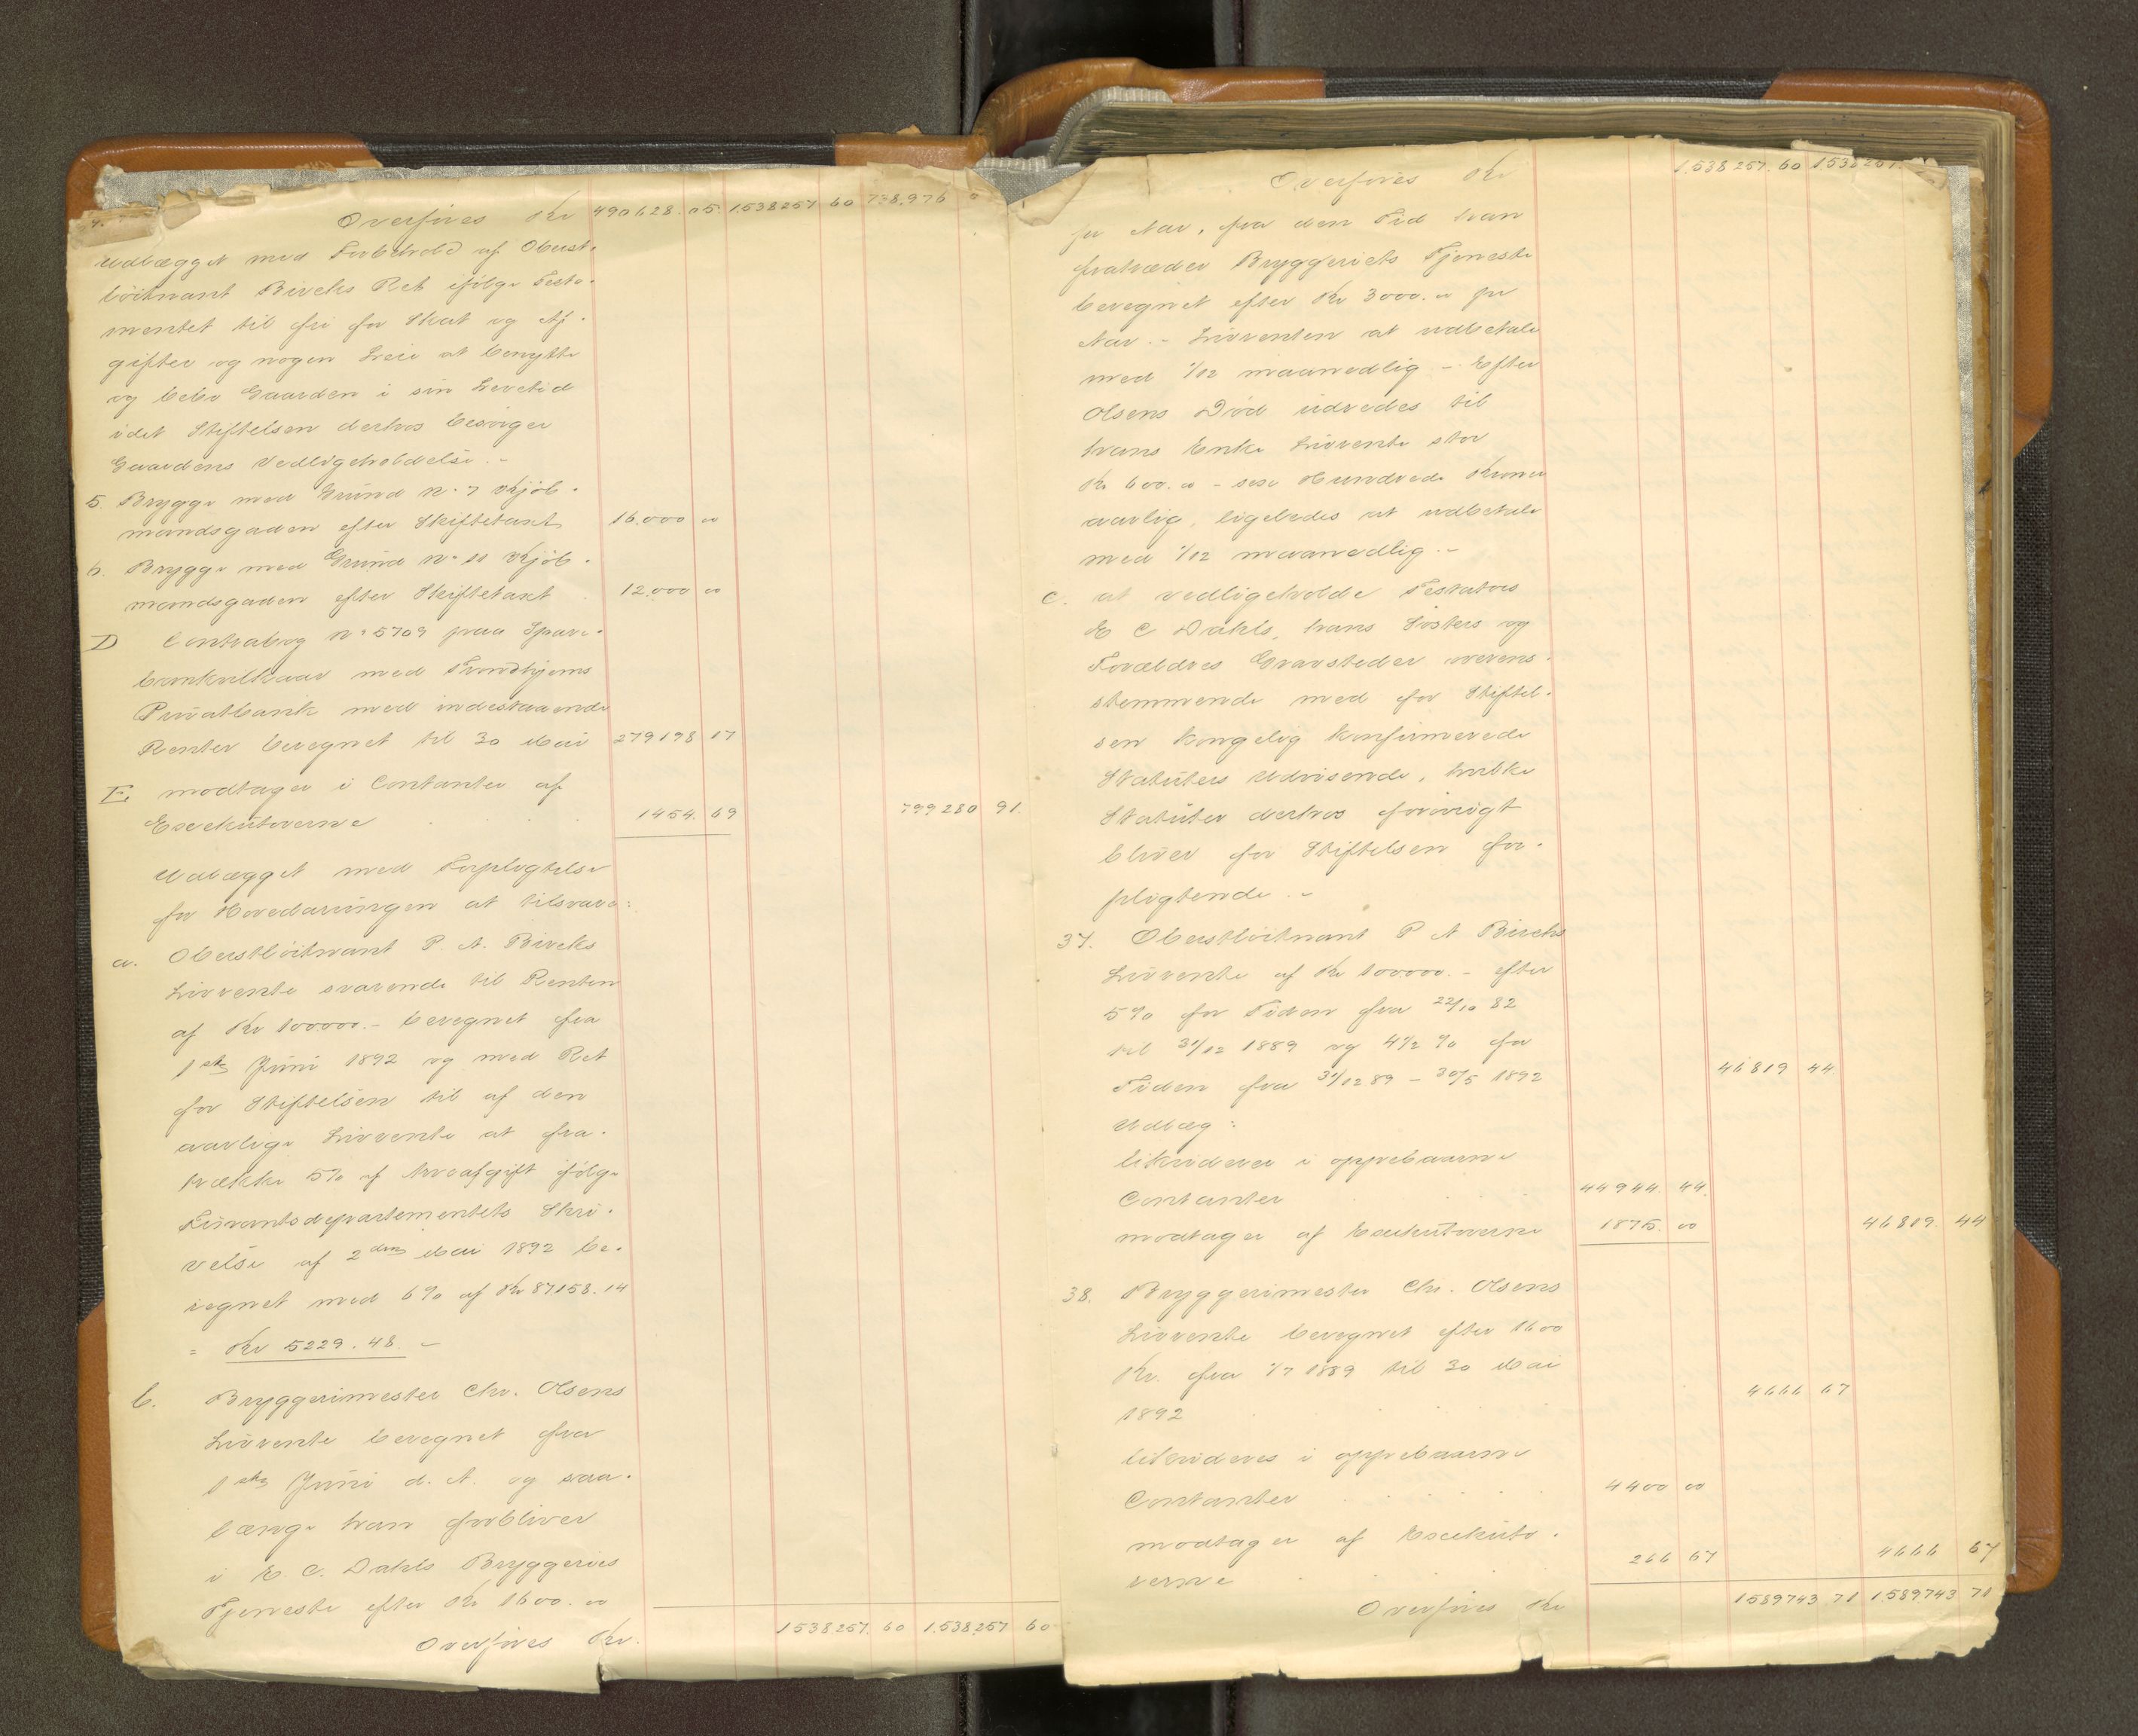 4. Overføres Kr 490628.05. 1.538257 60 738.976
Udlægget med Forbehold af Oberst-
löitnant Bircks Ret ifölge Testa-
mentet til fri for Skat og Af-
gifter og nogen Leie at benytte
og bebo Gaarden i sin Levetid
idet Stiftelsen derhos besörger
Gaardens Vedligeholdelse.-
5. Brygge med Grund No 7 Kjöb-
mandsgaden efter Skiftetaxt 16.000 00
6. Brygge med Grund No 11 Kjöb-
mandsgaden efter Skiftetaxt 12.000 00
D Contrabog No 5709 paa Spare-
bankvilkaar med Trondhjems
Privatbank med indestaaende
Renter beregnet til 30 Mai 279198 17
E. modtager i Contanter af
Executorerne 1454. 69 799280 91.
Udlægget med Forpligtelse
for Hovedarvingen at tilsvare:
a. Oberstlöitnant P. A. Bircks
Livrente svarende til Renten
af Kr 100000.- beregnet fra
1ste Juni 1892 og med Ret
for Stiftelsen til af den
aarlige Livrente at fra-
trække 5% af Arveafgift ifölge
Finantsdepartementets Skri-
velse af 2den Mai 1892 be-
regnet med 6% af Kr 87158.14
= Kr 5229.48 -
b. Bryggerimester Chr. Olsens
Livrente beregnet fra
1ste Juni d. A. og saa-
længe han forbliver
i E. C. Dahls Bryggeries
Tjeneste efter Kr 1600.00
Overføres Kr. 1538257. 60 1.538.257 60
Overføres Kr 1.538 257. 60 1.538257.
pr Aar, fra den Tid han
fratræder Bryggeriets Tjeneste
beregnet efter Kr 3000.00 pr
Aar.- Livrenten at udbetale
med 1/12 maanedlig - Efter
Olsens Död udredes til
hans Enke Livrente stor
Kr 600.00 - sex Hundrede Kroner
aarlig, ligeledes at udbetale
med 1/12 maanedlig.-
c. at vedligeholde Testators
E C Dahls, hans Sösters og
Forældres Gravsteder overens-
stemmende med for Stiftel-
sen kongelig konfirmerede
Statuters Udvisende, hvilke
Statuter derhos forövrigt
bliver for Stiftelsen for-
pligtende.-
37. Oberstlöitnant P A Bircks
Livrente af Kr 100000.- efter
5% for Tiden fra 22/10 82
til 31/12 1889 og 4 1/2 % for
Tiden fra 31/12 89 - 30/5 1892 46819 44
Udlæg:
likviderer i oppebaarne
Contanter 44944. 44.
modtager af Executorerne 1875. 00 46819. 44
38. Bryggerimester Chr. Olsens
Livrente beregnet efter 1600
Kr. fra 1/7 1889 til 30 Mai
1892 4666 67
likvideres i oppebaarne
Contanter 4400 00
modtager af Executo-
rerne 266 67 4666 67
Overføres Kr 1589743 71 1.589743 71